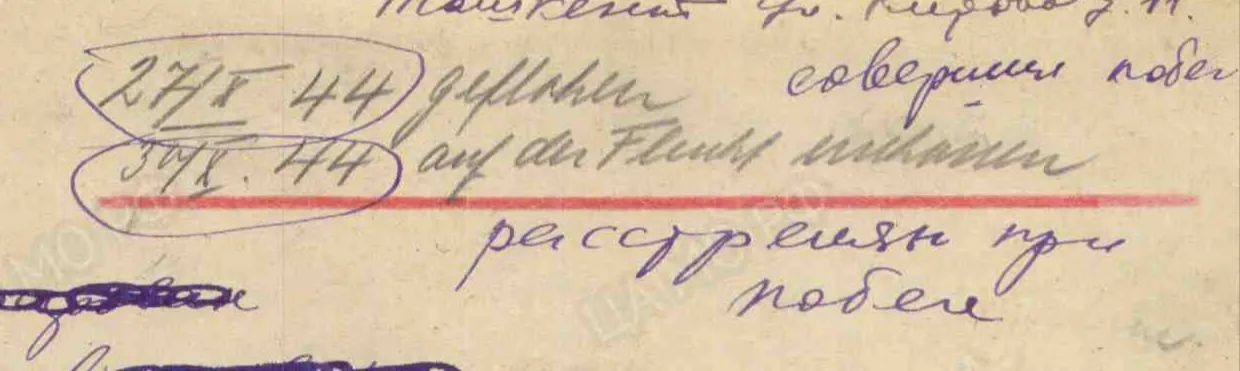 Ташкент ул. Кирова д. 11.
27/IX 44 geflohen совершил побег
30/IX. 44 auf der Flucht erschossen
расстрелян при
побеге